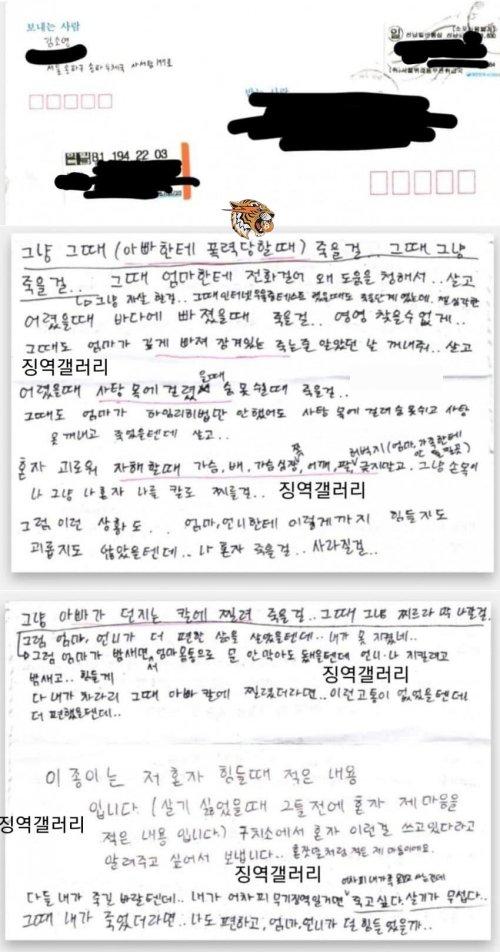 보내는 사람
김소영
서울 송파구 송파우체국 사서함 177호
받는 사람
81 194 22 03
그냥 그때 (아빠한테 폭력당할때) 죽을걸... 그때 그냥
죽을걸.. 그때 엄마한테 전화걸어 왜 도움을 청해서.. 살고
어렸을때 바다에 빠졌을때 죽을걸.. 영영 찾을수 없게..
그때도 엄마가 깊게 빠져 잠겨있는 죽는줄 알았던 날 꺼내줘.. 살고
징역갤러리
어렸을때 사탕 목에 걸렸을때 숨 못쉴때 죽을걸..
그때도 엄마가 하임리히법만 안했어도 사탕 목에 걸려 숨 못쉬고 사탕
못 꺼내고 죽었을텐데 살고..
혼자 괴로워 자해할때 가슴, 배, 가슴심장쪽, 어깨, 팔, 허벅지 (엄마, 가족한테 안 들킬곳) 긋지말고 그냥 손목이
나 그냥 나혼자 나를 칼로 찌를걸.. 징역갤러리
그럼 이런 상황도.. 엄마, 언니한테 이렇게까지 힘들지도
괴롭지도 않았을텐데.. 나 혼자 죽을걸.. 사라질걸..
그냥 아빠가 던지는 칼에 찔려 죽을걸.. 그때 그냥 찌르라 막 나갈걸.
그럼 엄마, 언니가 더 편한 삶을 살았을텐데.. 내가 못 지켰네..
그럼 엄마가 밤새면서 엄마몸통으로 문 안막아도 됐을텐데 언니·나 지키려고
밤새고.. 힘들게 징역갤러리
다 내가 차라리 그때 아빠 칼에 찔렸더라면.. 이런고통이 없었을텐데
더 편했을텐데..
이 종이는 저 혼자 힘들때 적은 내용
입니다 (살기 싫었을때 그틀전에 혼자 제 마음을
징역갤러리
적은 내용 입니다) 구치소에서 혼자 이런걸 쓰고있다라고
알려주고 싶어서 보냅니다.. 혼잣말처럼 적은 제 마음이에요.
징역갤러리
다들 내가 죽길 바랄텐데.. 내가 어차피 무기징역일거면 죽고싶다. 살기가 무섭다..
그때 내가 죽었더라면.. 나도 편하고, 엄마, 언니가 덜 힘들었을까..